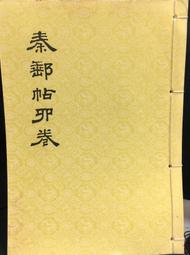 秦郵帖四卷